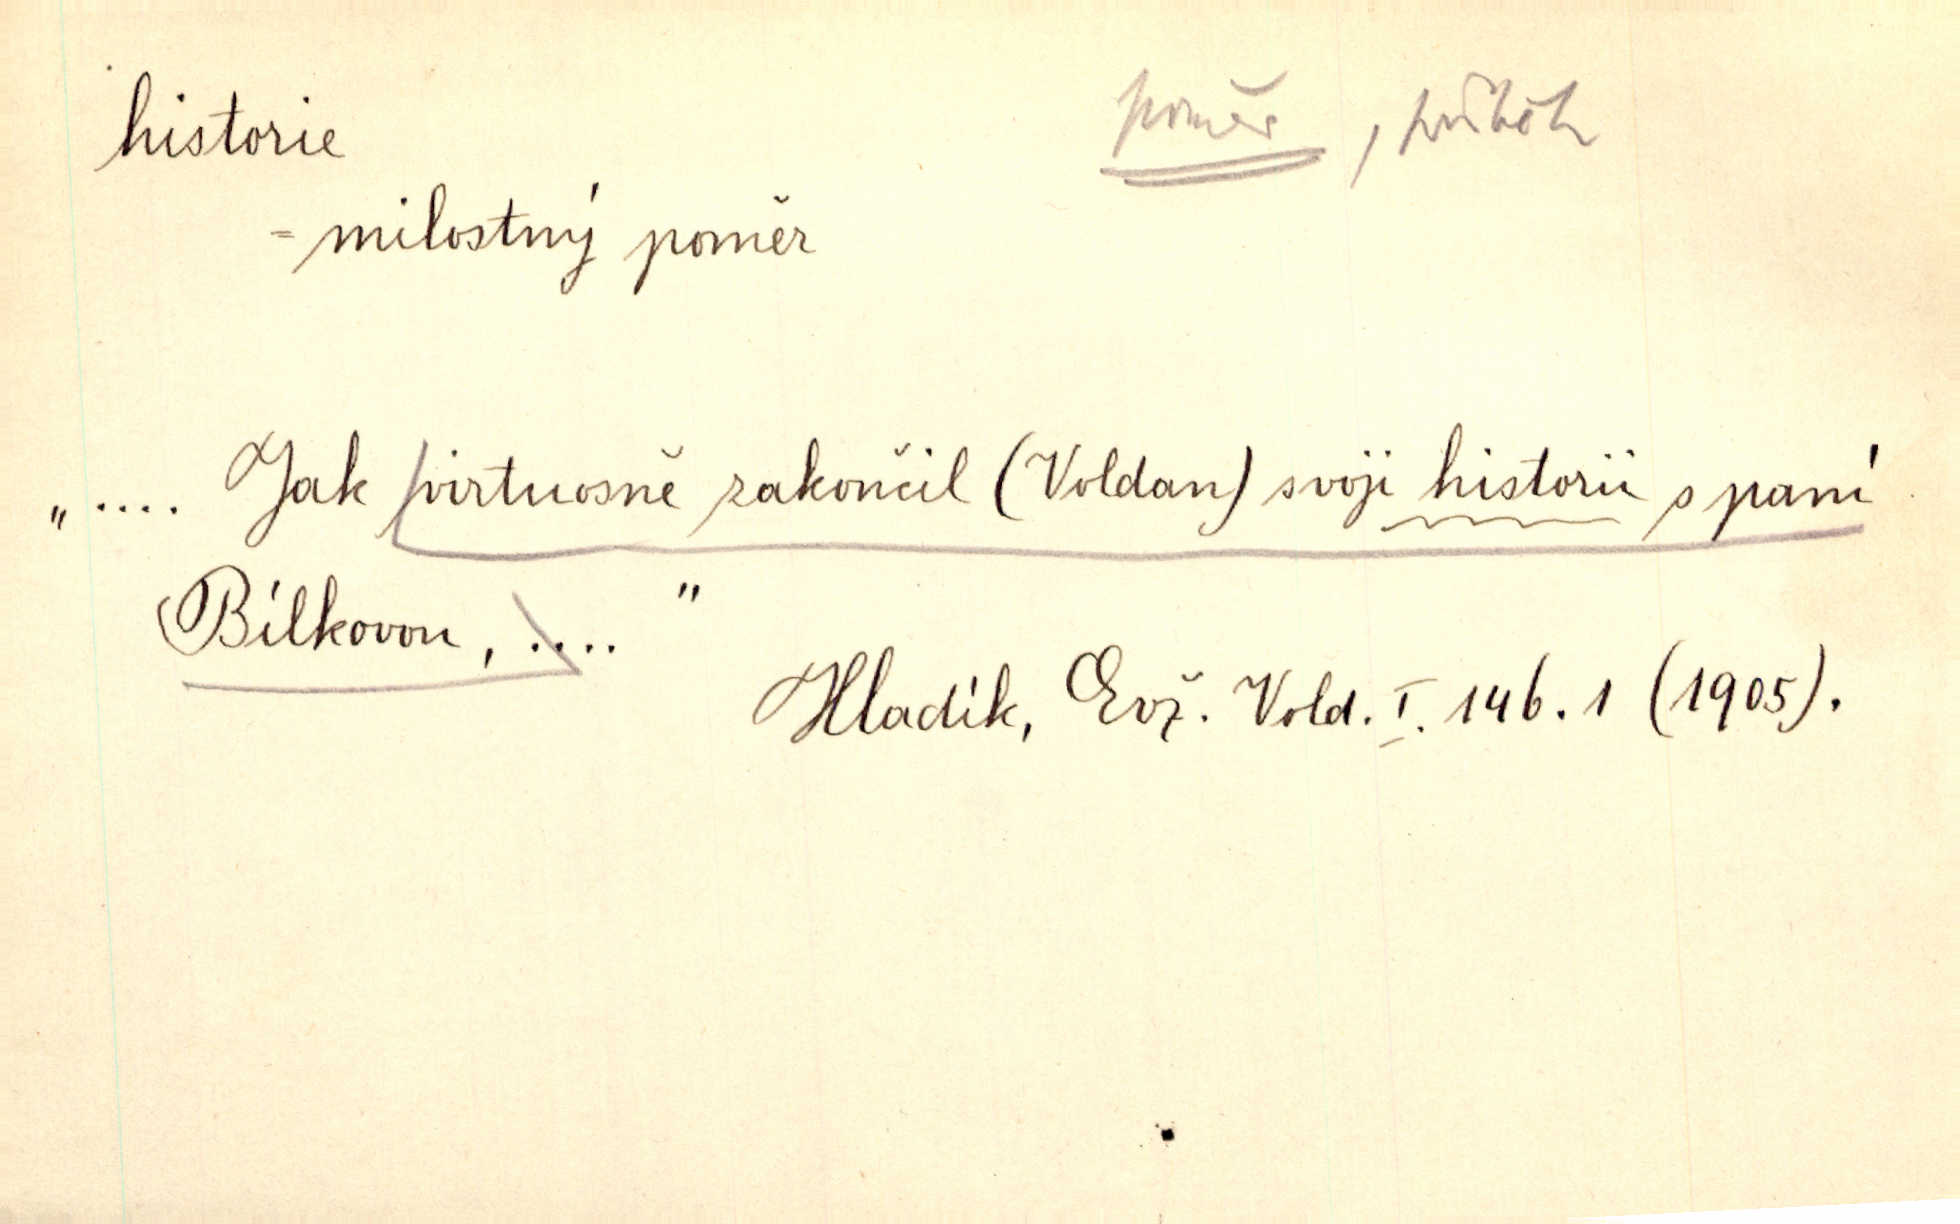 historie
poměr, příběh
= milostný poměr
„.... Jak virtuosně zakončil (Voldan) svoji historii s paní
Bílkovou, ...."
Hladík, Evž. Vold. I. 146.1 (1905).